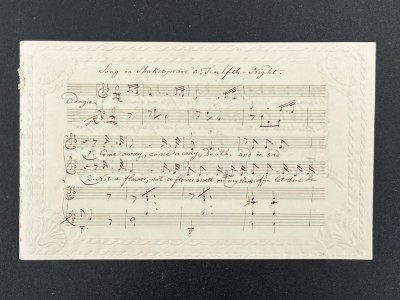 Song in Shakespeare's Twelfth-Night.
Adagio
1. Come away, come away, Death, and in sad
2. Not a flower, not a flower sweet on my black coffin let there be